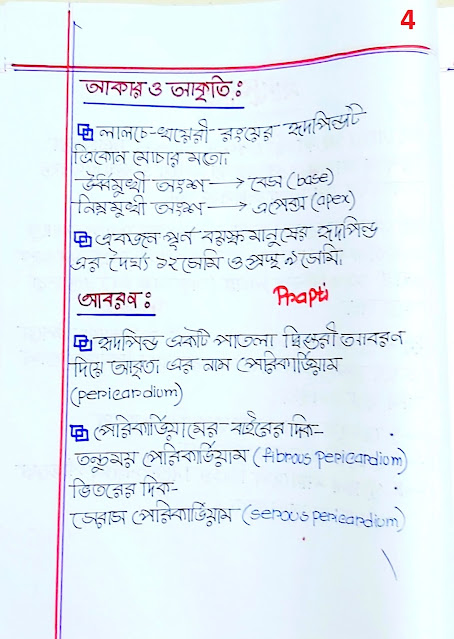 4
আকার ও আকৃতি:
লালচে-খয়েরী রংয়ের হৃদপিন্ডটি
ত্রিকোন মোচার মতো।
উর্ধ্বমুখী অংশ → বেস (base)
নিম্নমুখী অংশ → এপেক্স (apex)
একজন পূর্ন বয়স্ক মানুষের হৃদপিন্ড
এর দৈর্ঘ্য ১২ সেমি ও প্রস্থ ৯ সেমি।
আবরন:
Prapti
হৃদপিন্ড একটি পাতলা দ্বিস্তরী আবরন
দিয়ে আবৃত। এর নাম পেরিকার্ডিয়াম
(pericardium)
পেরিকার্ডিয়ামের বাইরের দিক-
তন্তুময় পেরিকার্ডিয়াম (fibrous pericardium)
ভিতরের দিক-
সেরাস পেরিকার্ডিয়াম (serous pericardium)